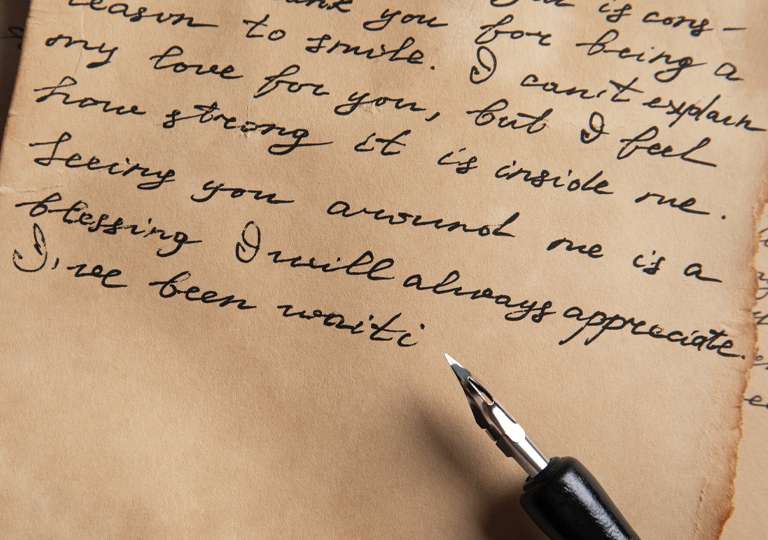 you is cons-
reason to smile. you for being a
my love for you, I can't explain
how strong it is inside me. but I feel
Seeing you around me is a
blessing I will always appreciate.
I've been waiti